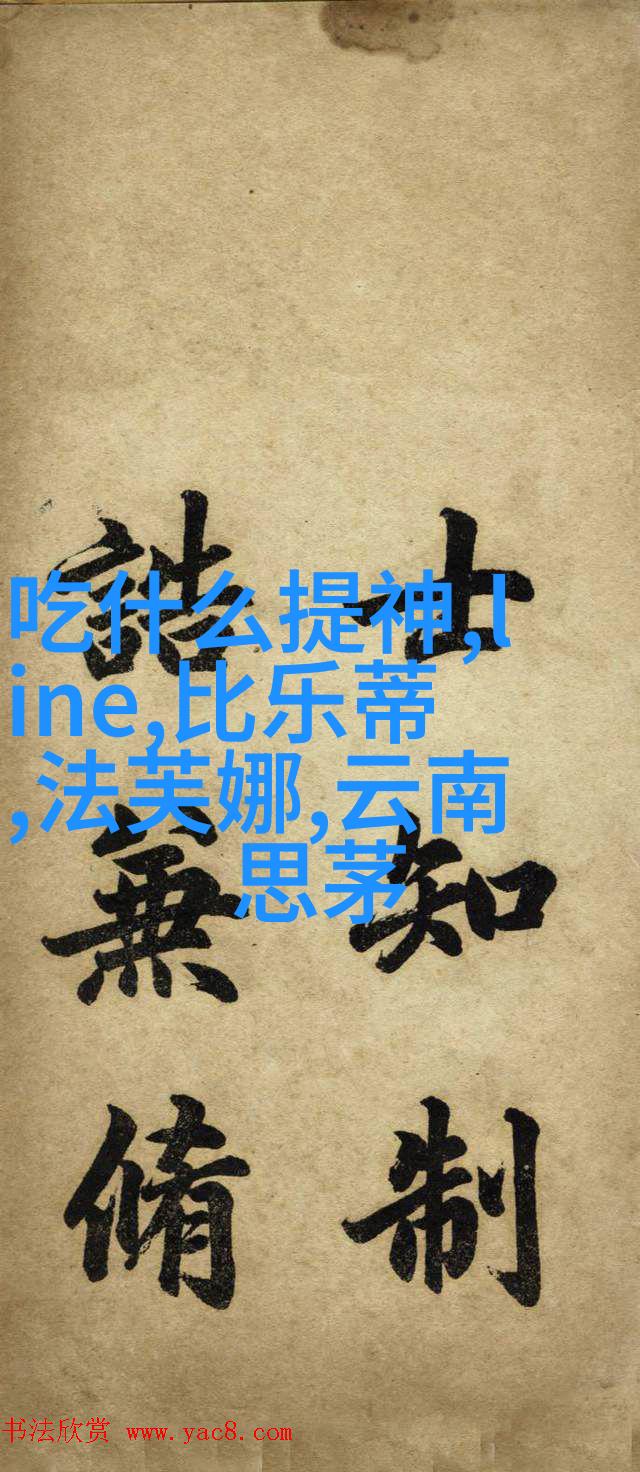 士知制
誥兼脩
吃什么提神,l
ine,比乐蒂
,法芙娜,云南
思茅
书法欣赏 www.yac8.com